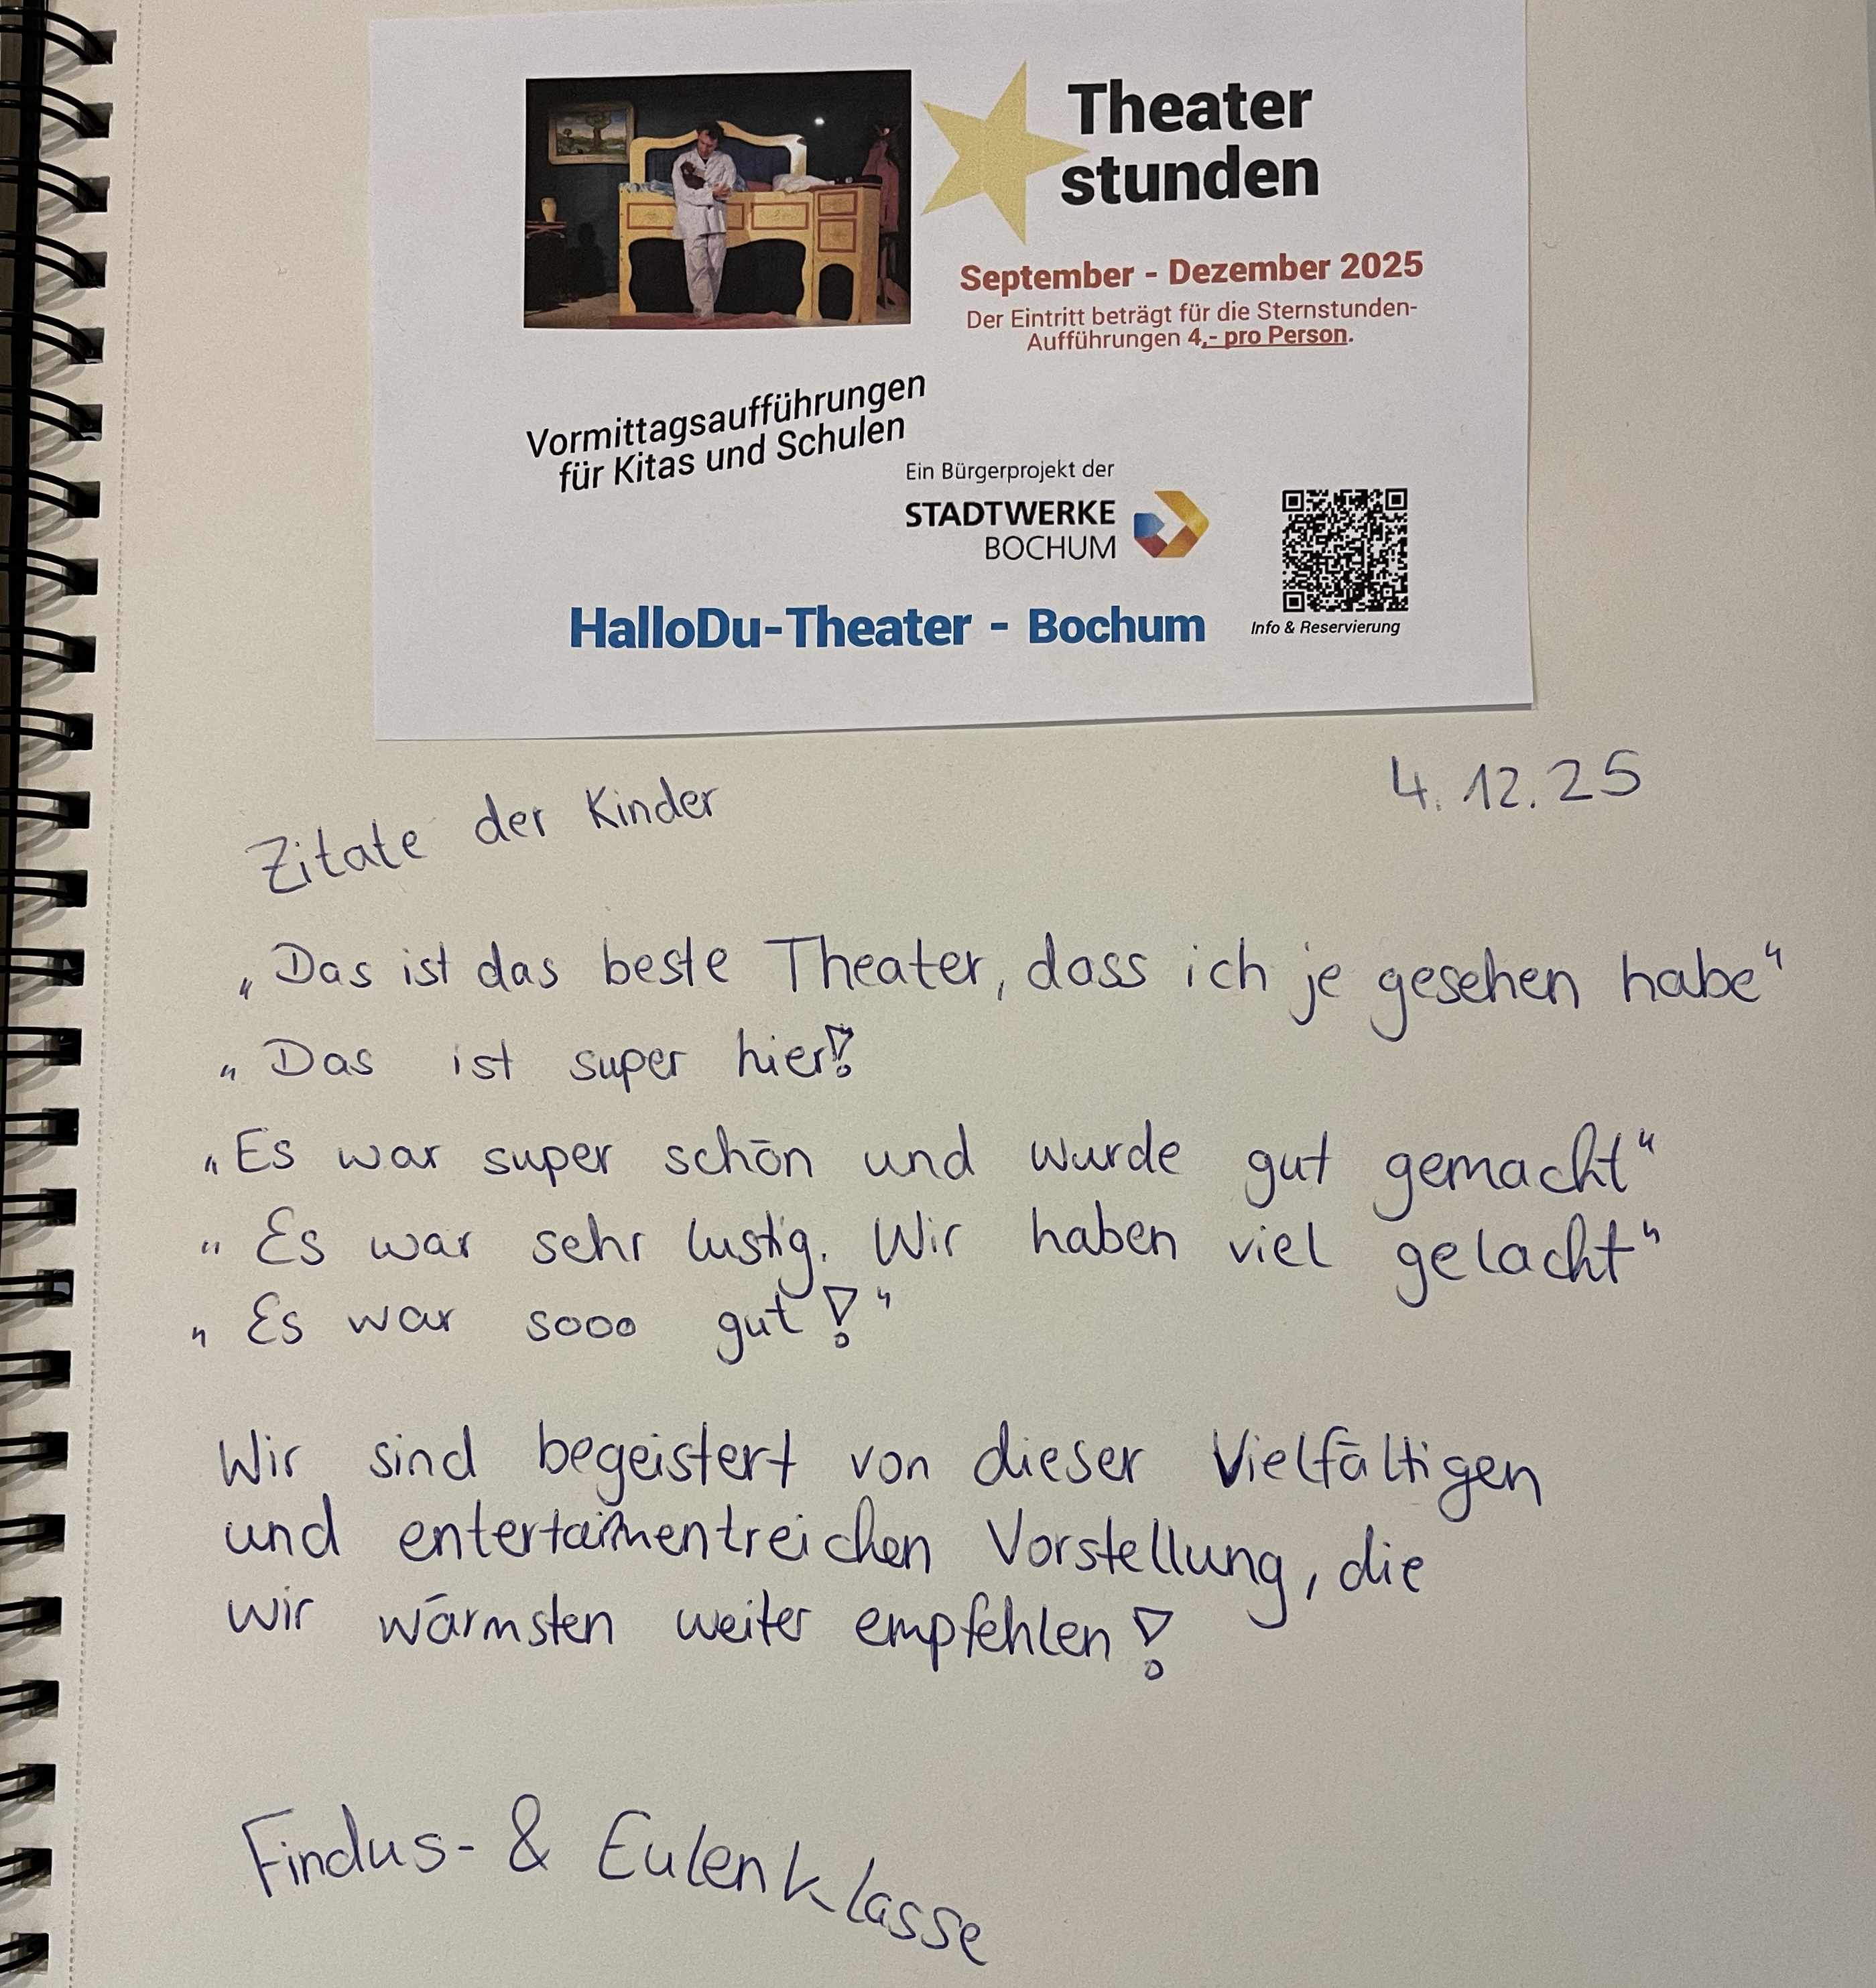 Theater
stunden
September - Dezember 2025
Der Eintritt beträgt für die Sternstunden-
Aufführungen 4,- pro Person.
Vormittagsaufführungen
für Kitas und Schulen
Ein Bürgerprojekt der
STADTWERKE
BOCHUM
HalloDu-Theater - Bochum
Info & Reservierung
4.12.25
Zitate der Kinder
„Das ist das beste Theater, dass ich je gesehen habe“
„Das ist super hier!
„Es war super schön und wurde gut gemacht“
„Es war sehr lustig. Wir haben viel gelacht“
„Es war sooo gut!“
Wir sind begeistert von dieser Vielfältigen
und Vorstellung, die
wir wärmsten weiter empfehlen!
Findus- & Eulenklasse